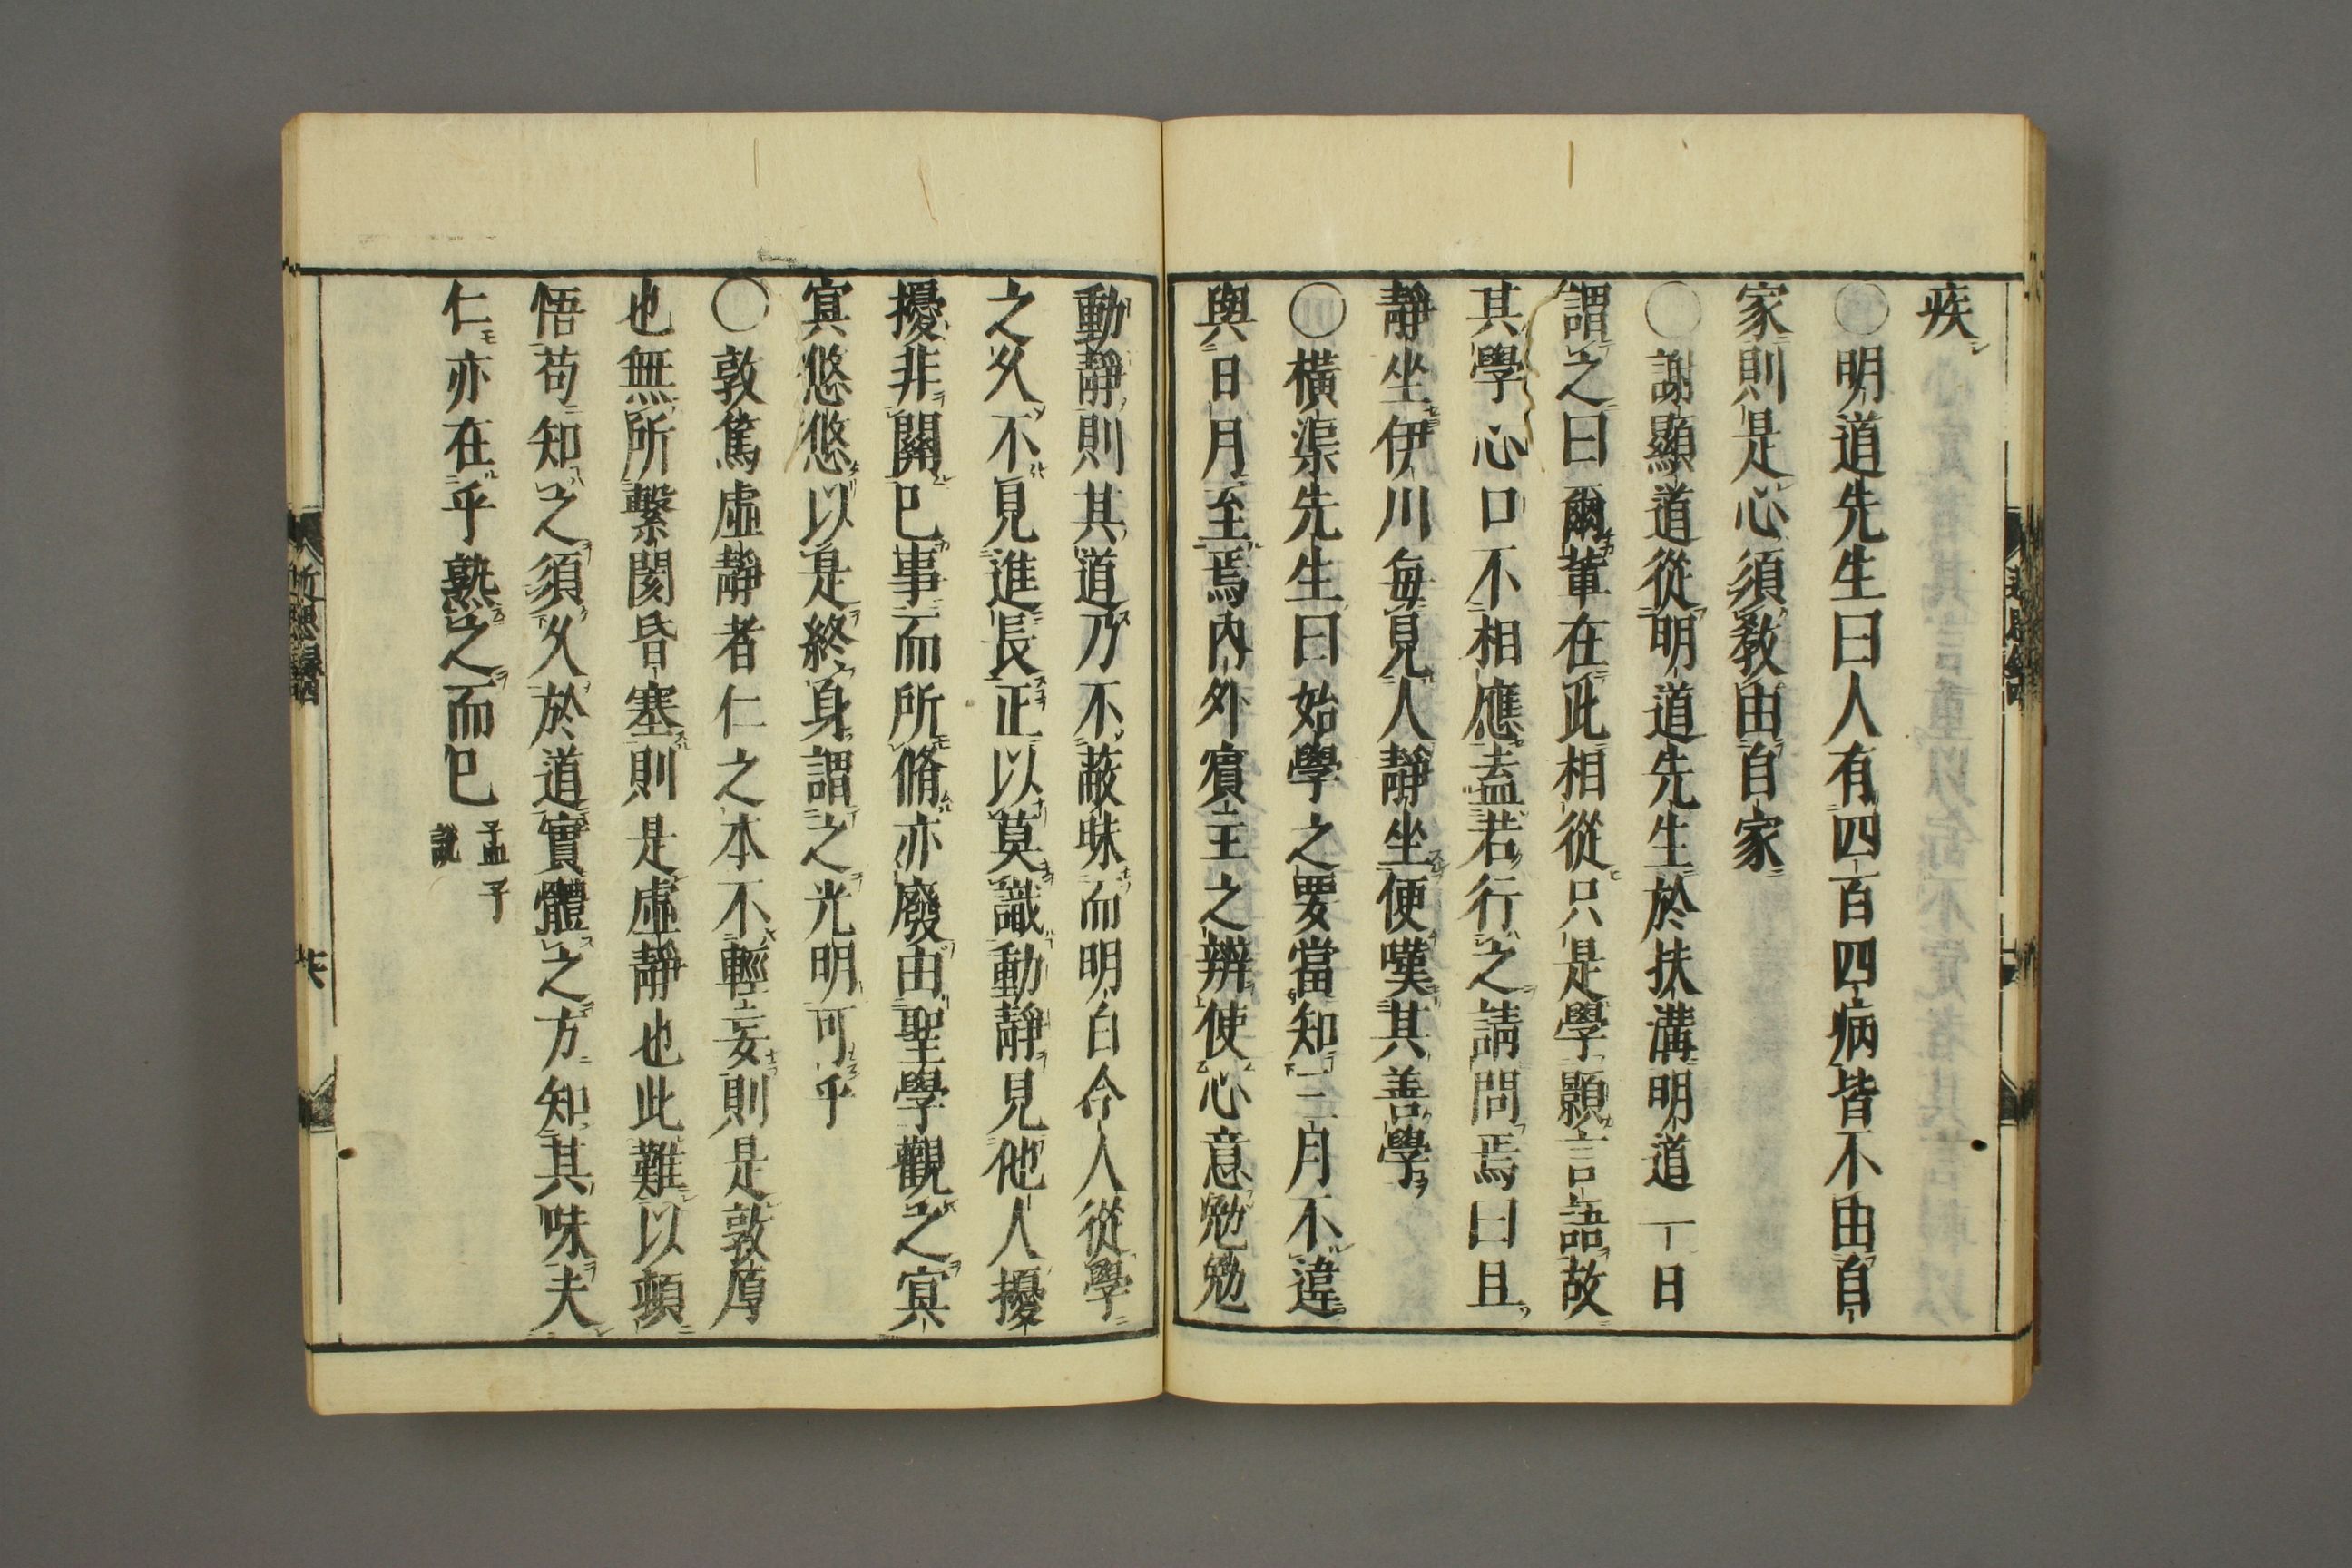 疾
○明道先生曰人有四百四病皆不由自
家則是心須敎由自家
○謝顯道從明道先生於扶溝明道一日
謂之曰爾輩在此相從只是學顥言語故
其學心口不相應盍若行之請問焉曰且
靜坐伊川每見人靜坐便嘆其善學
○橫渠先生曰始學之要當知三月不違
與日月至焉內外賓主之辨使心意勉勉
動靜則其道乃不蔽昧而明白今人從學
之久不見進長正以莫識動靜見他人擾
擾非關己事而所脩亦廢由聖學觀之冥
冥悠悠以是終身謂之光明可乎
○敦篤虛靜者仁之本不輕妄則是敦厚
也無所繫閡昏塞則是虛靜也此難以頓
悟苟知之須久於道實體之方知其味夫
仁亦在乎熟之而已 孟子
說
近思錄四